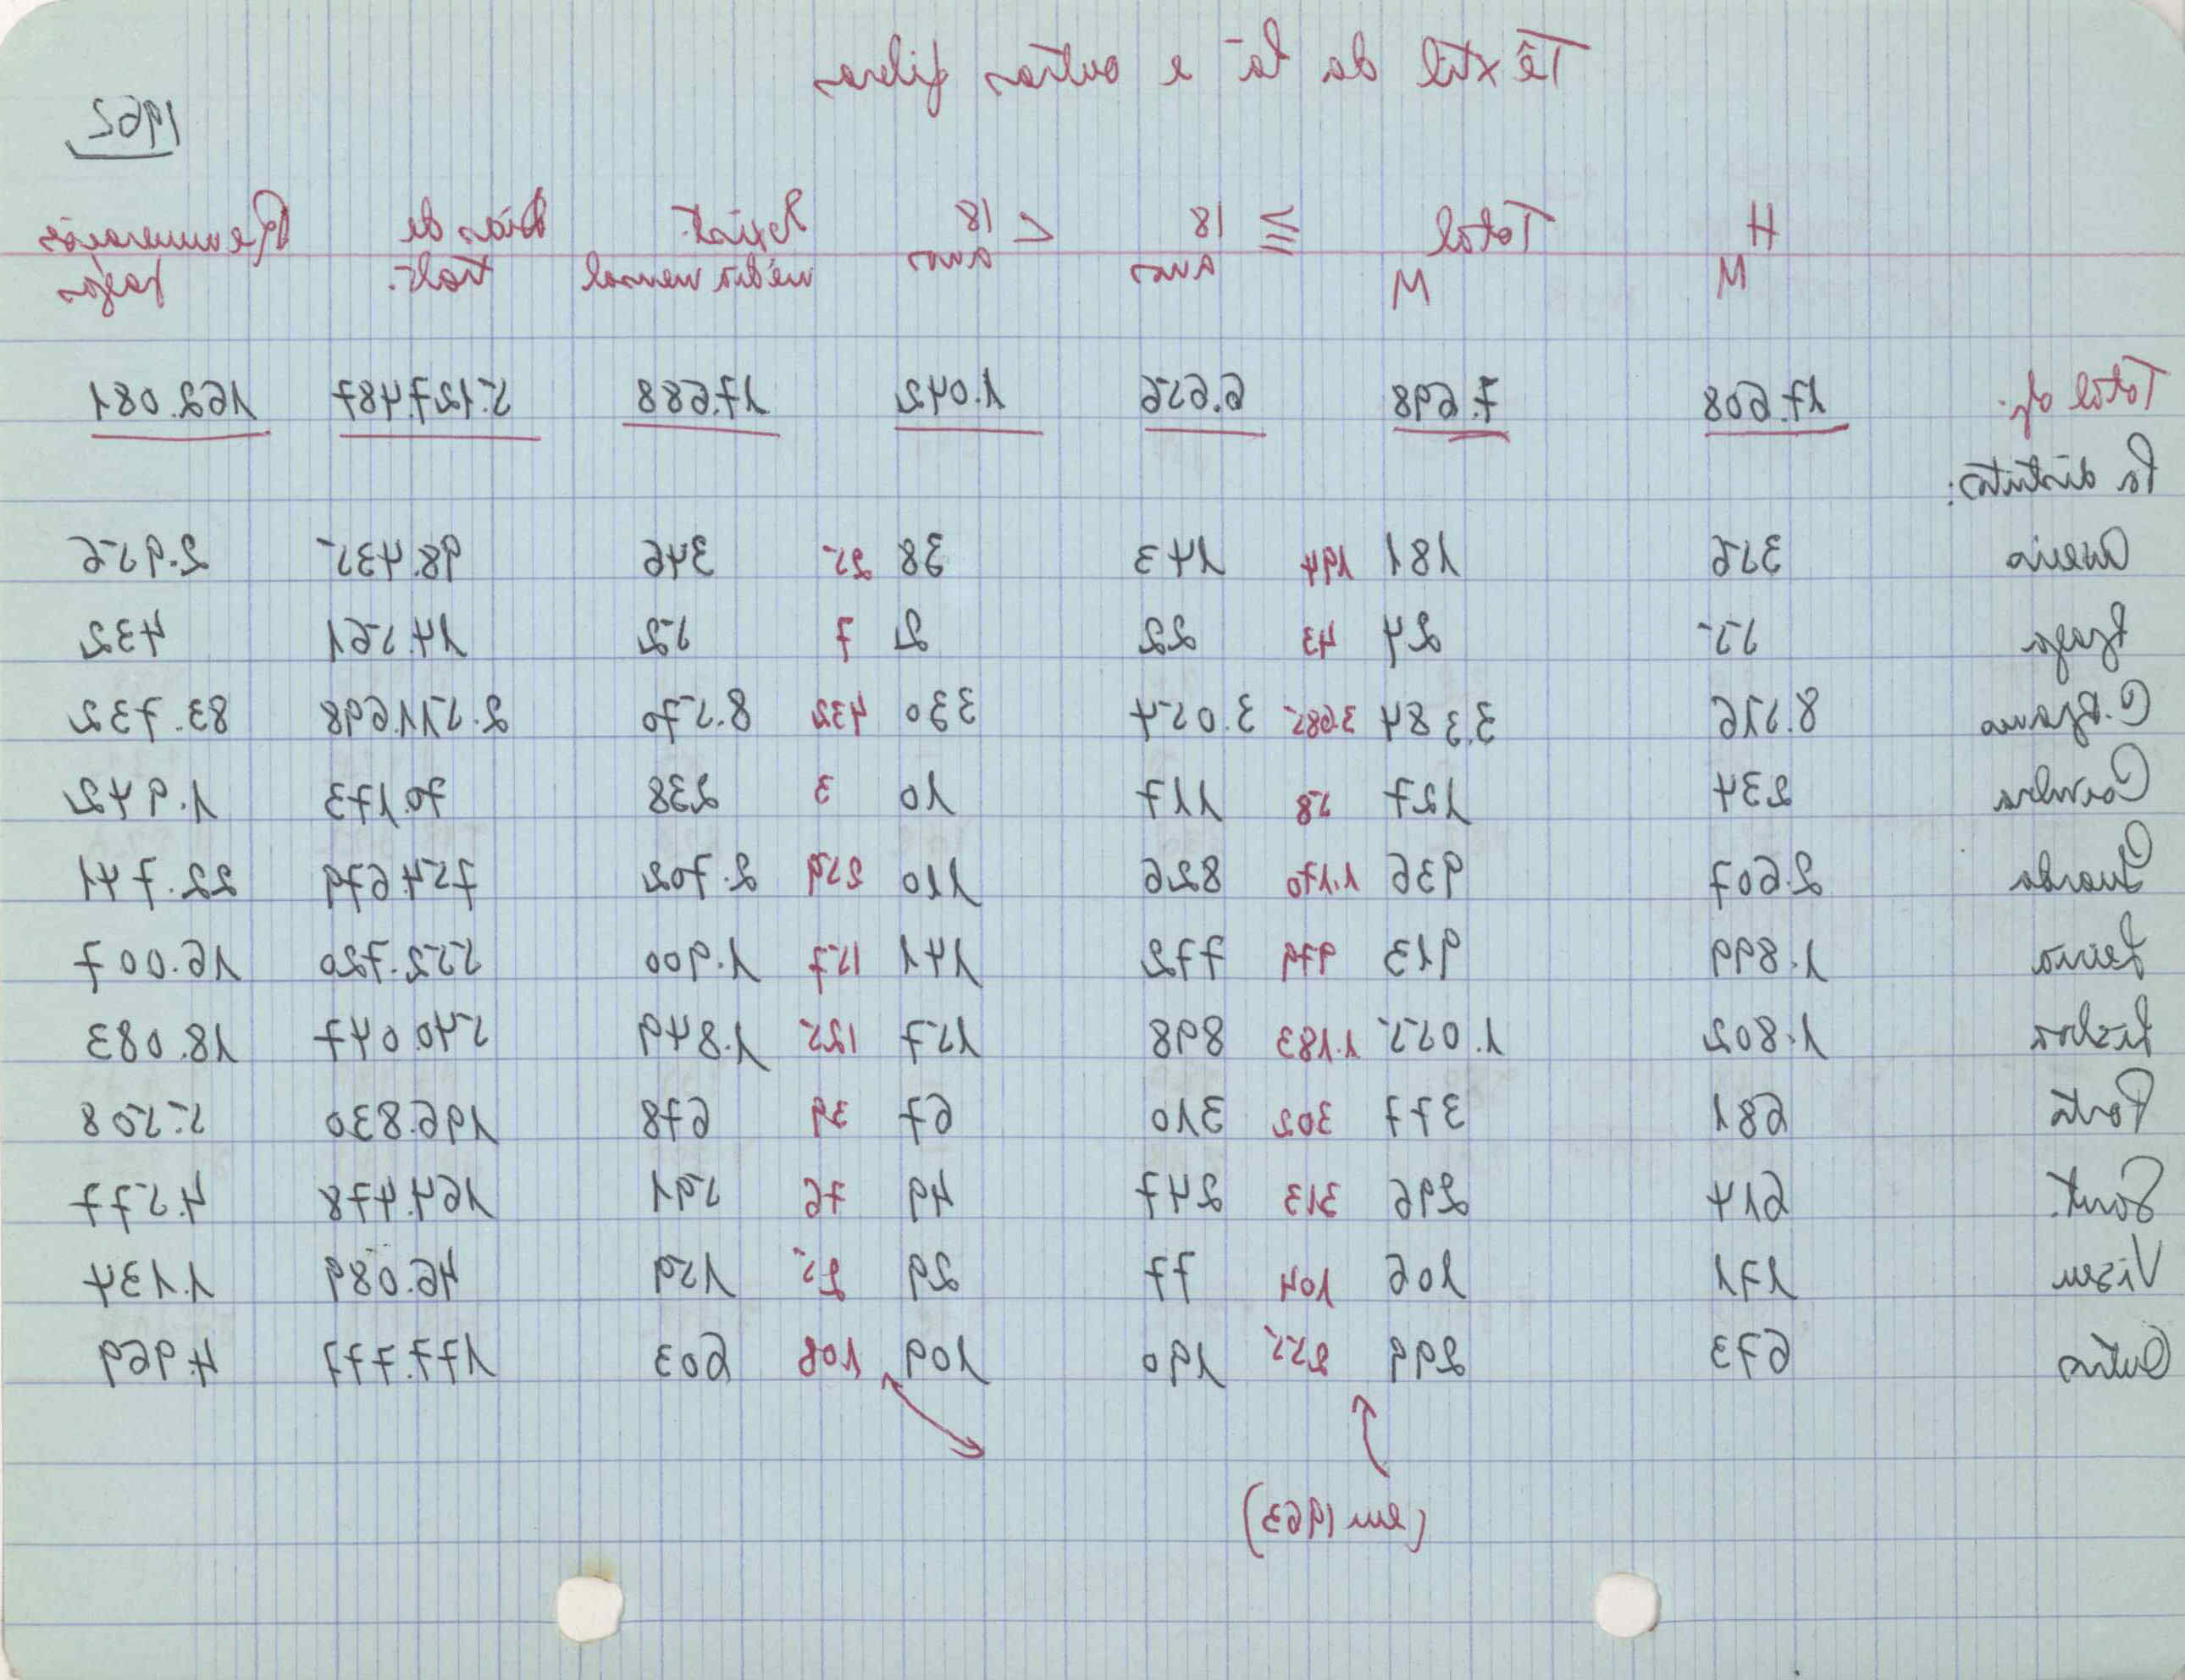 Têxtil da lã e outras fibras
1962
H M Total M ≧ 18 anos < 18 anos Exist. média mensal Dias de trab. Remunerações pagas
Total g. 17.608 7.698 6.656 1.042 17.688 5.127.487 162.081
Po distritos:
Aveiro 356 181 194 143 38 25 346 98.435 2.956
Braga 55 24 43 22 2 7 52 14.561 432
C. Branco 8.516 3.384 3.685 3.054 330 432 8.570 2.511.698 83.732
Coimbra 234 127 58 117 10 3 238 70.173 1.942
Guarda 2.607 936 1.170 826 110 259 2.702 754.679 22.741
Leiria 1.899 913 979 772 141 157 1.900 552.720 16.007
Lisboa 1.802 1.055 1.183 898 157 125 1.849 540.047 18.083
Porto 681 377 302 310 67 39 678 196.830 5.508
Sant. 614 296 313 247 49 76 591 164.478 4.577
Viseu 171 106 104 77 29 25 159 46.089 1.134
Outros 673 299 255 190 109 108 603 177.777 4.969
(em 1963)